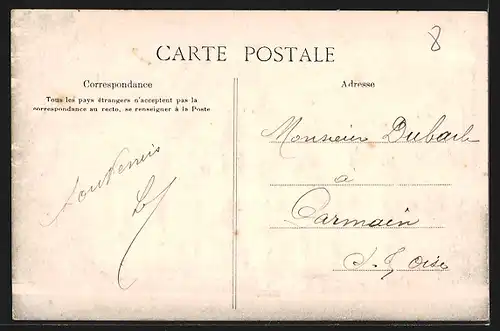 8
CARTE POSTALE
Correspondance
Tous les pays étrangers n'acceptent pas la
correspondance au recto, se renseigner à la Poste
Souvenirs
Adresse
Monsieur Dubach
à
Parmain
S. & Oise